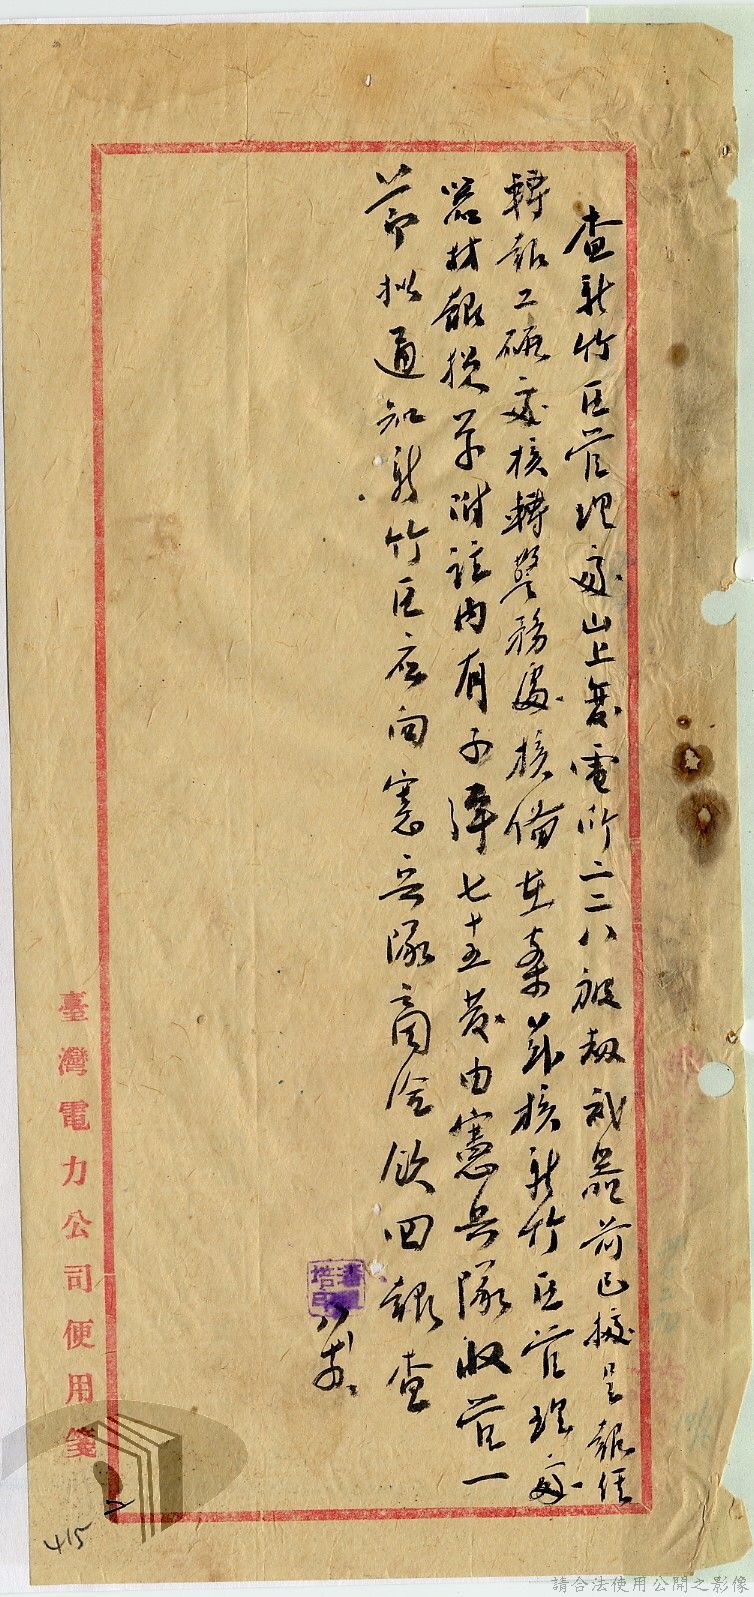 查新竹区管理处山上變電所二二八被刼武器前已據呈報經
轉報工礦处核轉警務處核備在案茲核新竹区管理处
器材報損單附註內有子彈七十五發由憲兵隊收管一
節拟通知新竹区应向憲兵隊商洽欲回報查
臺灣電力公司便用箋
415
請合法使用公開之影像